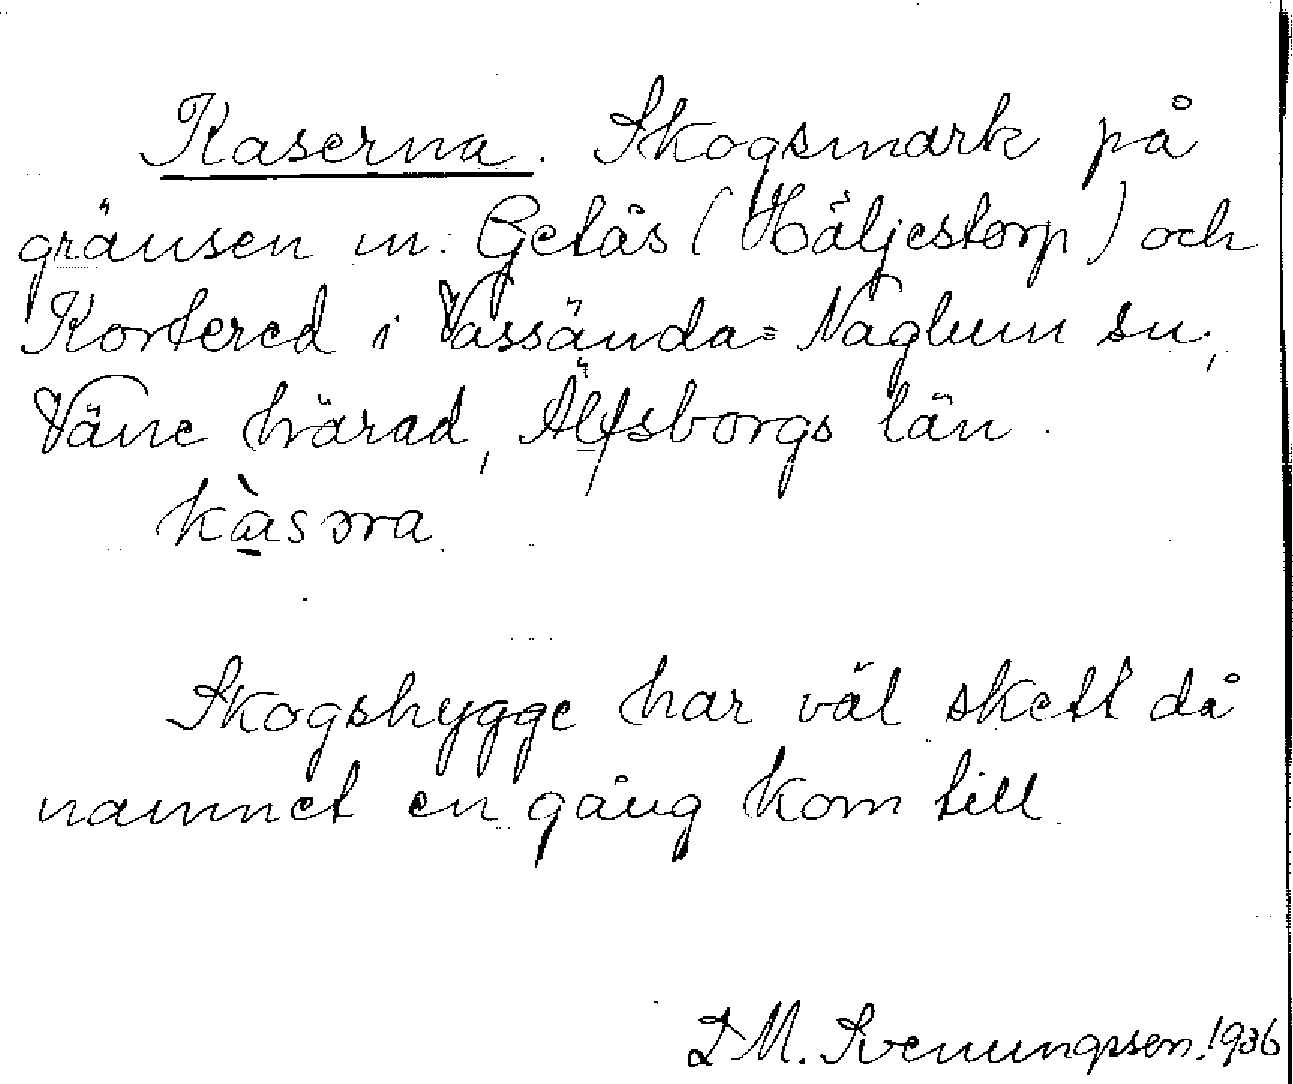 Kaserna. Skogsmark på
gränsen m. Getås (Häljestorp) och
Kortered i Vassända=Naglum sn,
Väne härad, Älfsborgs län.
kàsəra.
Skogshygge har väl skett då
namnet en gång kom till.
D M. Svenungsson. 1936